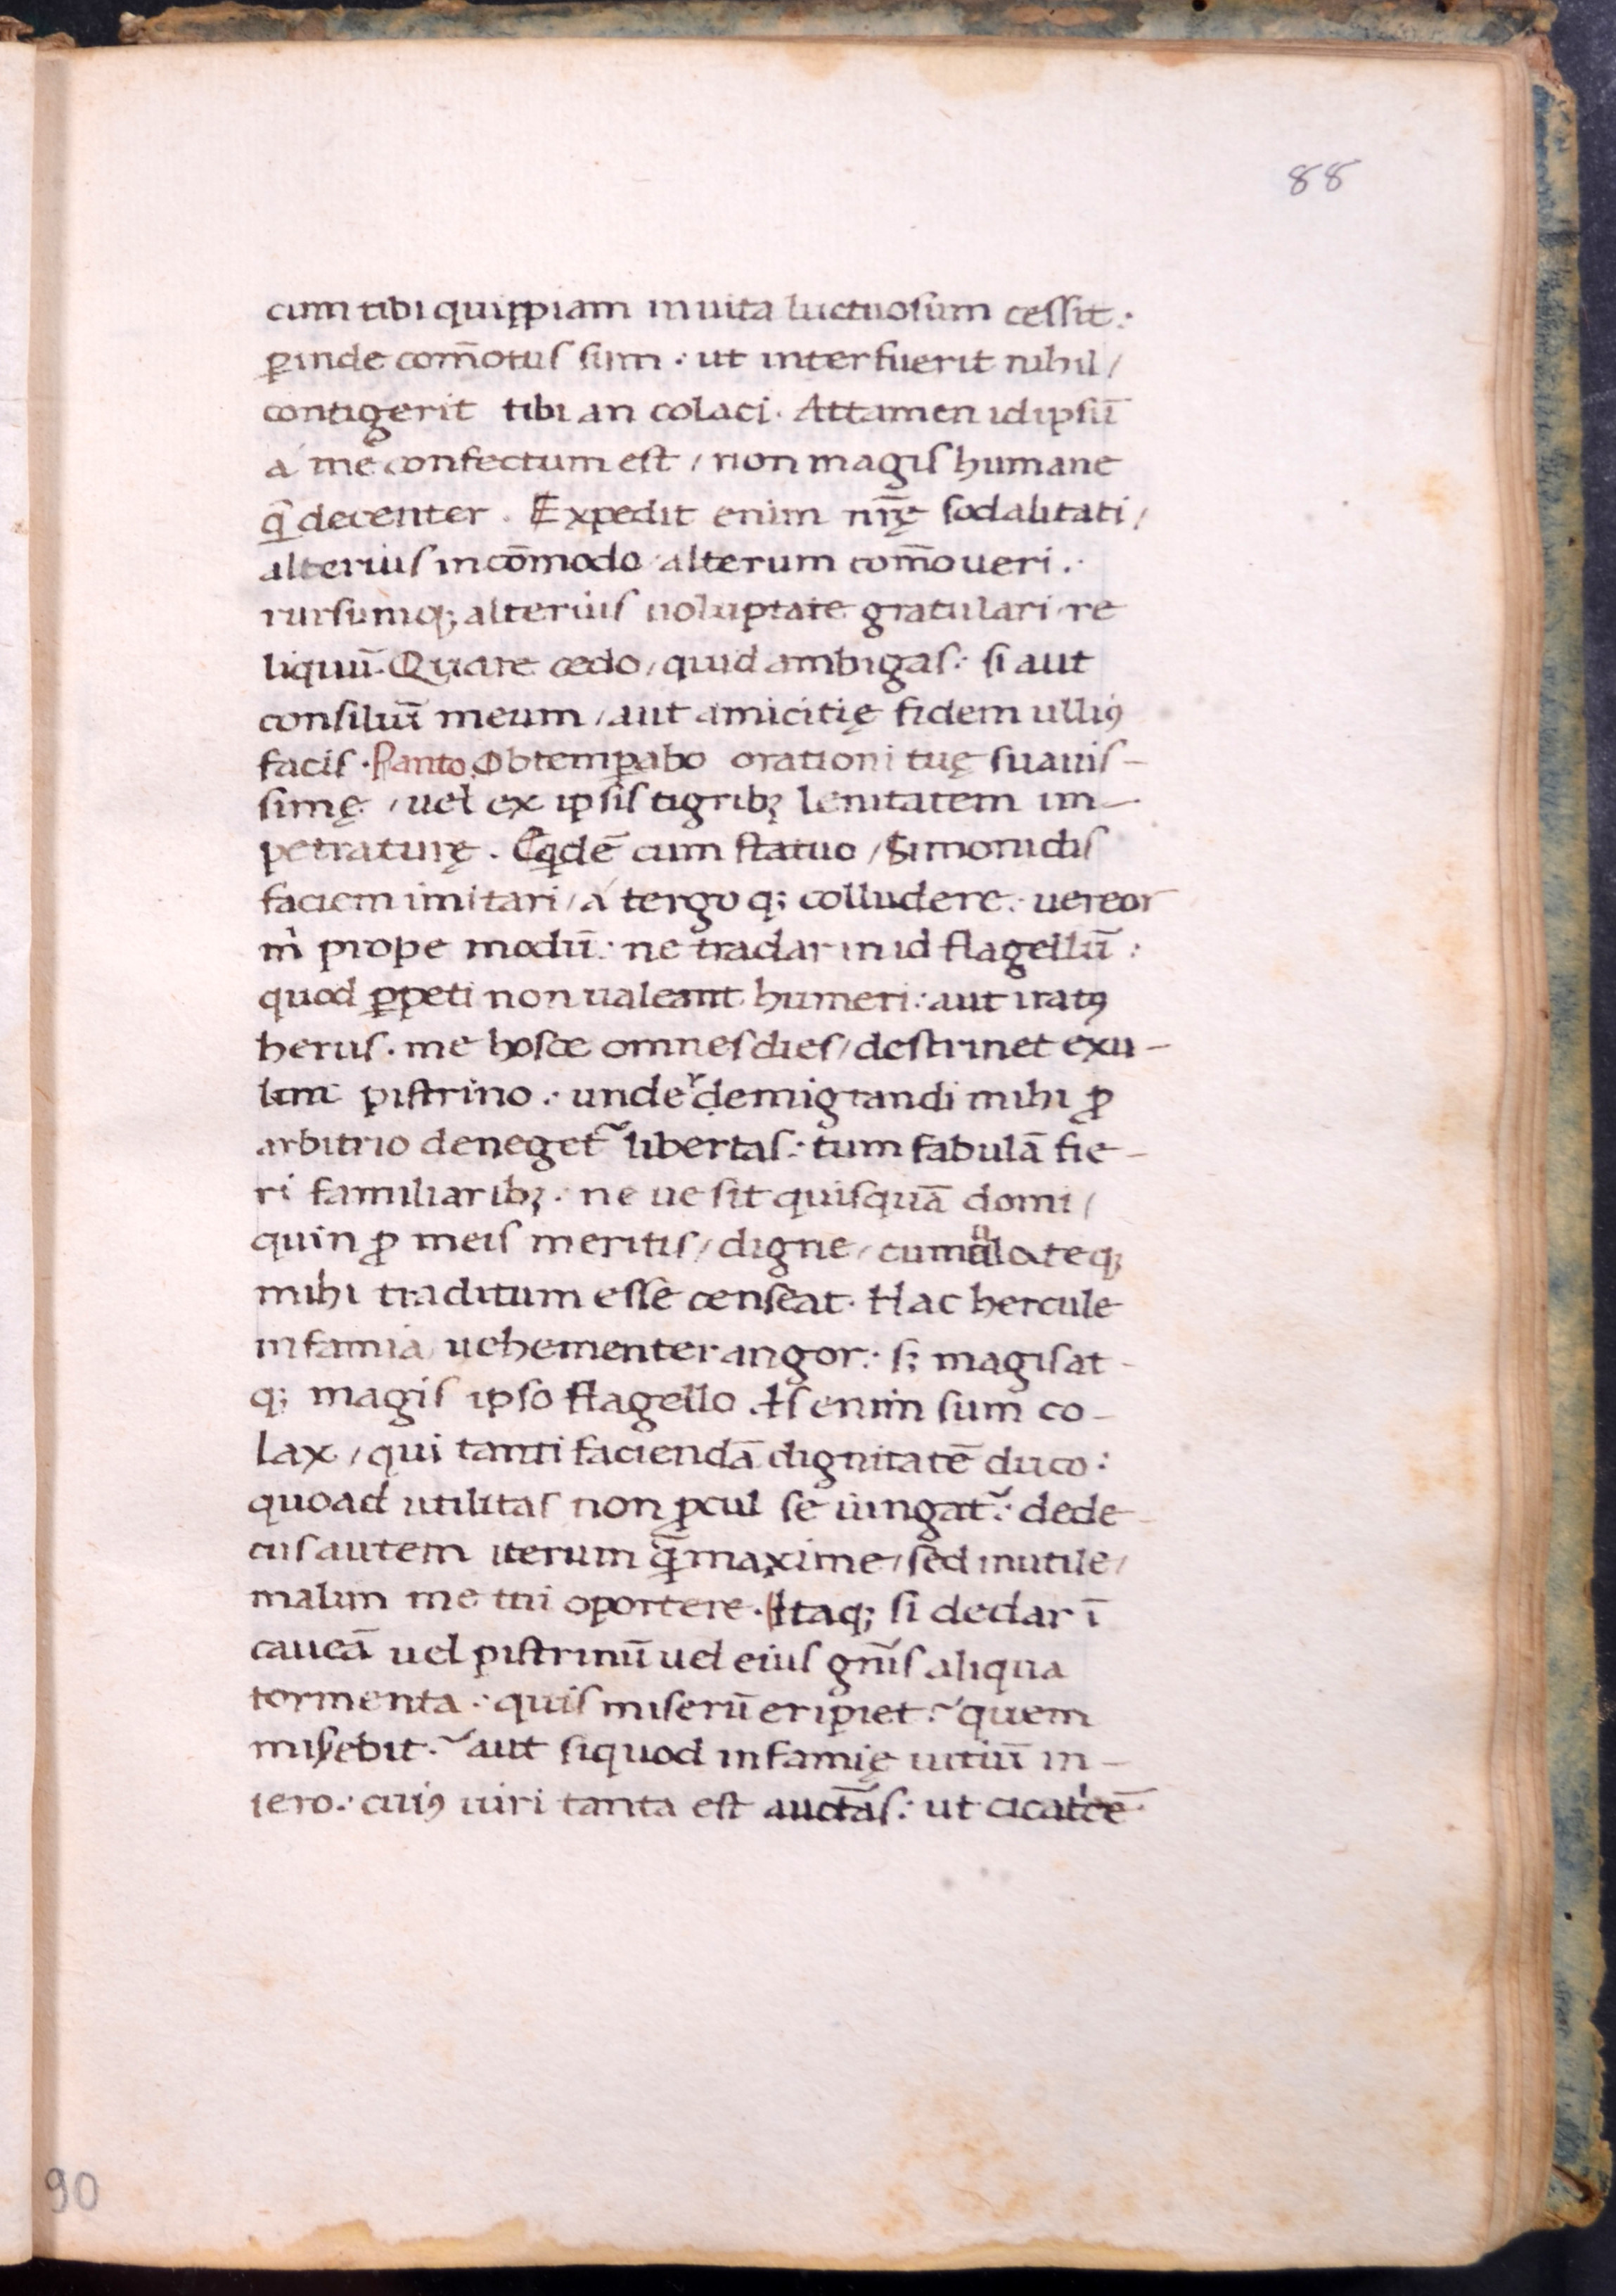 88
cum tibi quippiam in uita luctuosum cessit:
ꝑinde com̄otus sum · ut interfuerit nihil /
contigerit tibi an colaci. Attamen id ipsū
á me confectum est / non magis humane
q̄ decenter. Expedit enim nr̄ę sodalitati /
alterius incōmodo / alterum com̄oueri.
rursumq; alterius uoluptate gratulari / re
liquū. Quare cedo / quid ambigas: si aut
consiliū meum / aut amicitię fidem ulliꝰ
facis. Panto. Obtemꝑabo orationi tuę suauis-
simę / uel ex ipsis tigribꝫ lenitatem im-
petraturę. Eqdē cum statuo / Simonidis
faciem imitari / á tergo q; colludere: uereor
m̀ prope modū: ne tradar in id flagellū:
quod ꝑpeti non ualeant humeri: aut iratꝰ
herus. me hosce omnes dies / destinet exu-
lem pistrino: unde demigrandi mihi ꝓ
arbitrio deneget᷑ libertas: tum fabulā fie-
ri familiaribꝫ. ne ue sit quisquā domi /
quin ꝓ meis meritis / digne / cumulateq;
mihi traditum esse censeat. Hac hercule
infamia uehementer angor: s; magis at-
q; magis ipso flagello. Is enim sum co-
lax / qui tanti faciendā dignitatē duco:
quoad utilitas non ꝓcul se iungat᷑: dede-
cus autem iterum q̄maxime / sed inutile /
malim me tui oportere. Itaq; si dedar ī
caueā uel pistrinū uel eius gn̄is aliqua
tormenta: quis miserū eripiet? quem
misebit? aut siquod infamię uitiū in-
iero: cuiꝰ uiri tanta est auctā̄s: ut cicatⁱcē
90